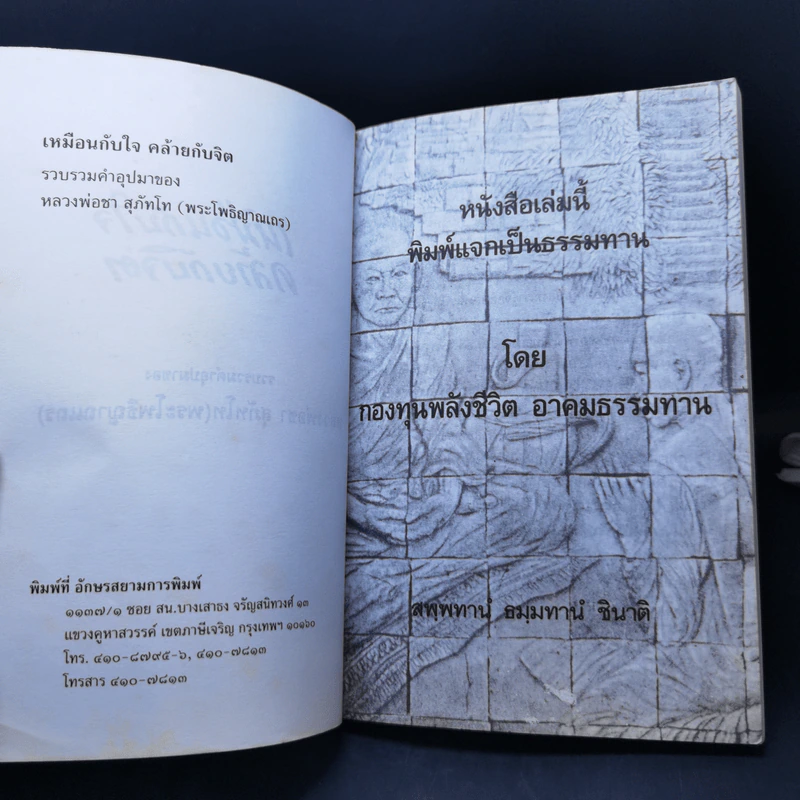 เหมือนกับใจ คล้ายกับจิต
รวบรวมคำอุปมาของ
หลวงพ่อชา สุภัทโท (พระโพธิญาณเถร)
พิมพ์ที่ อักษรสยามการพิมพ์
๑๑๓๗/๑ ซอย สน.บางเสาธง จรัญสนิทวงศ์ ๑๓
แขวงคูหาสวรรค์ เขตภาษีเจริญ กรุงเทพฯ ๑๐๑๖๐
โทร. ๔๑๐-๘๗๙๕-๖, ๔๑๐-๗๘๑๓
โทรสาร ๔๑๐-๗๘๑๓
หนังสือเล่มนี้
พิมพ์แจกเป็นธรรมทาน
โดย
กองทุนพลังชีวิต อาคมธรรมทาน
สพฺพทานํ ธมฺมทานํ ชินาติ